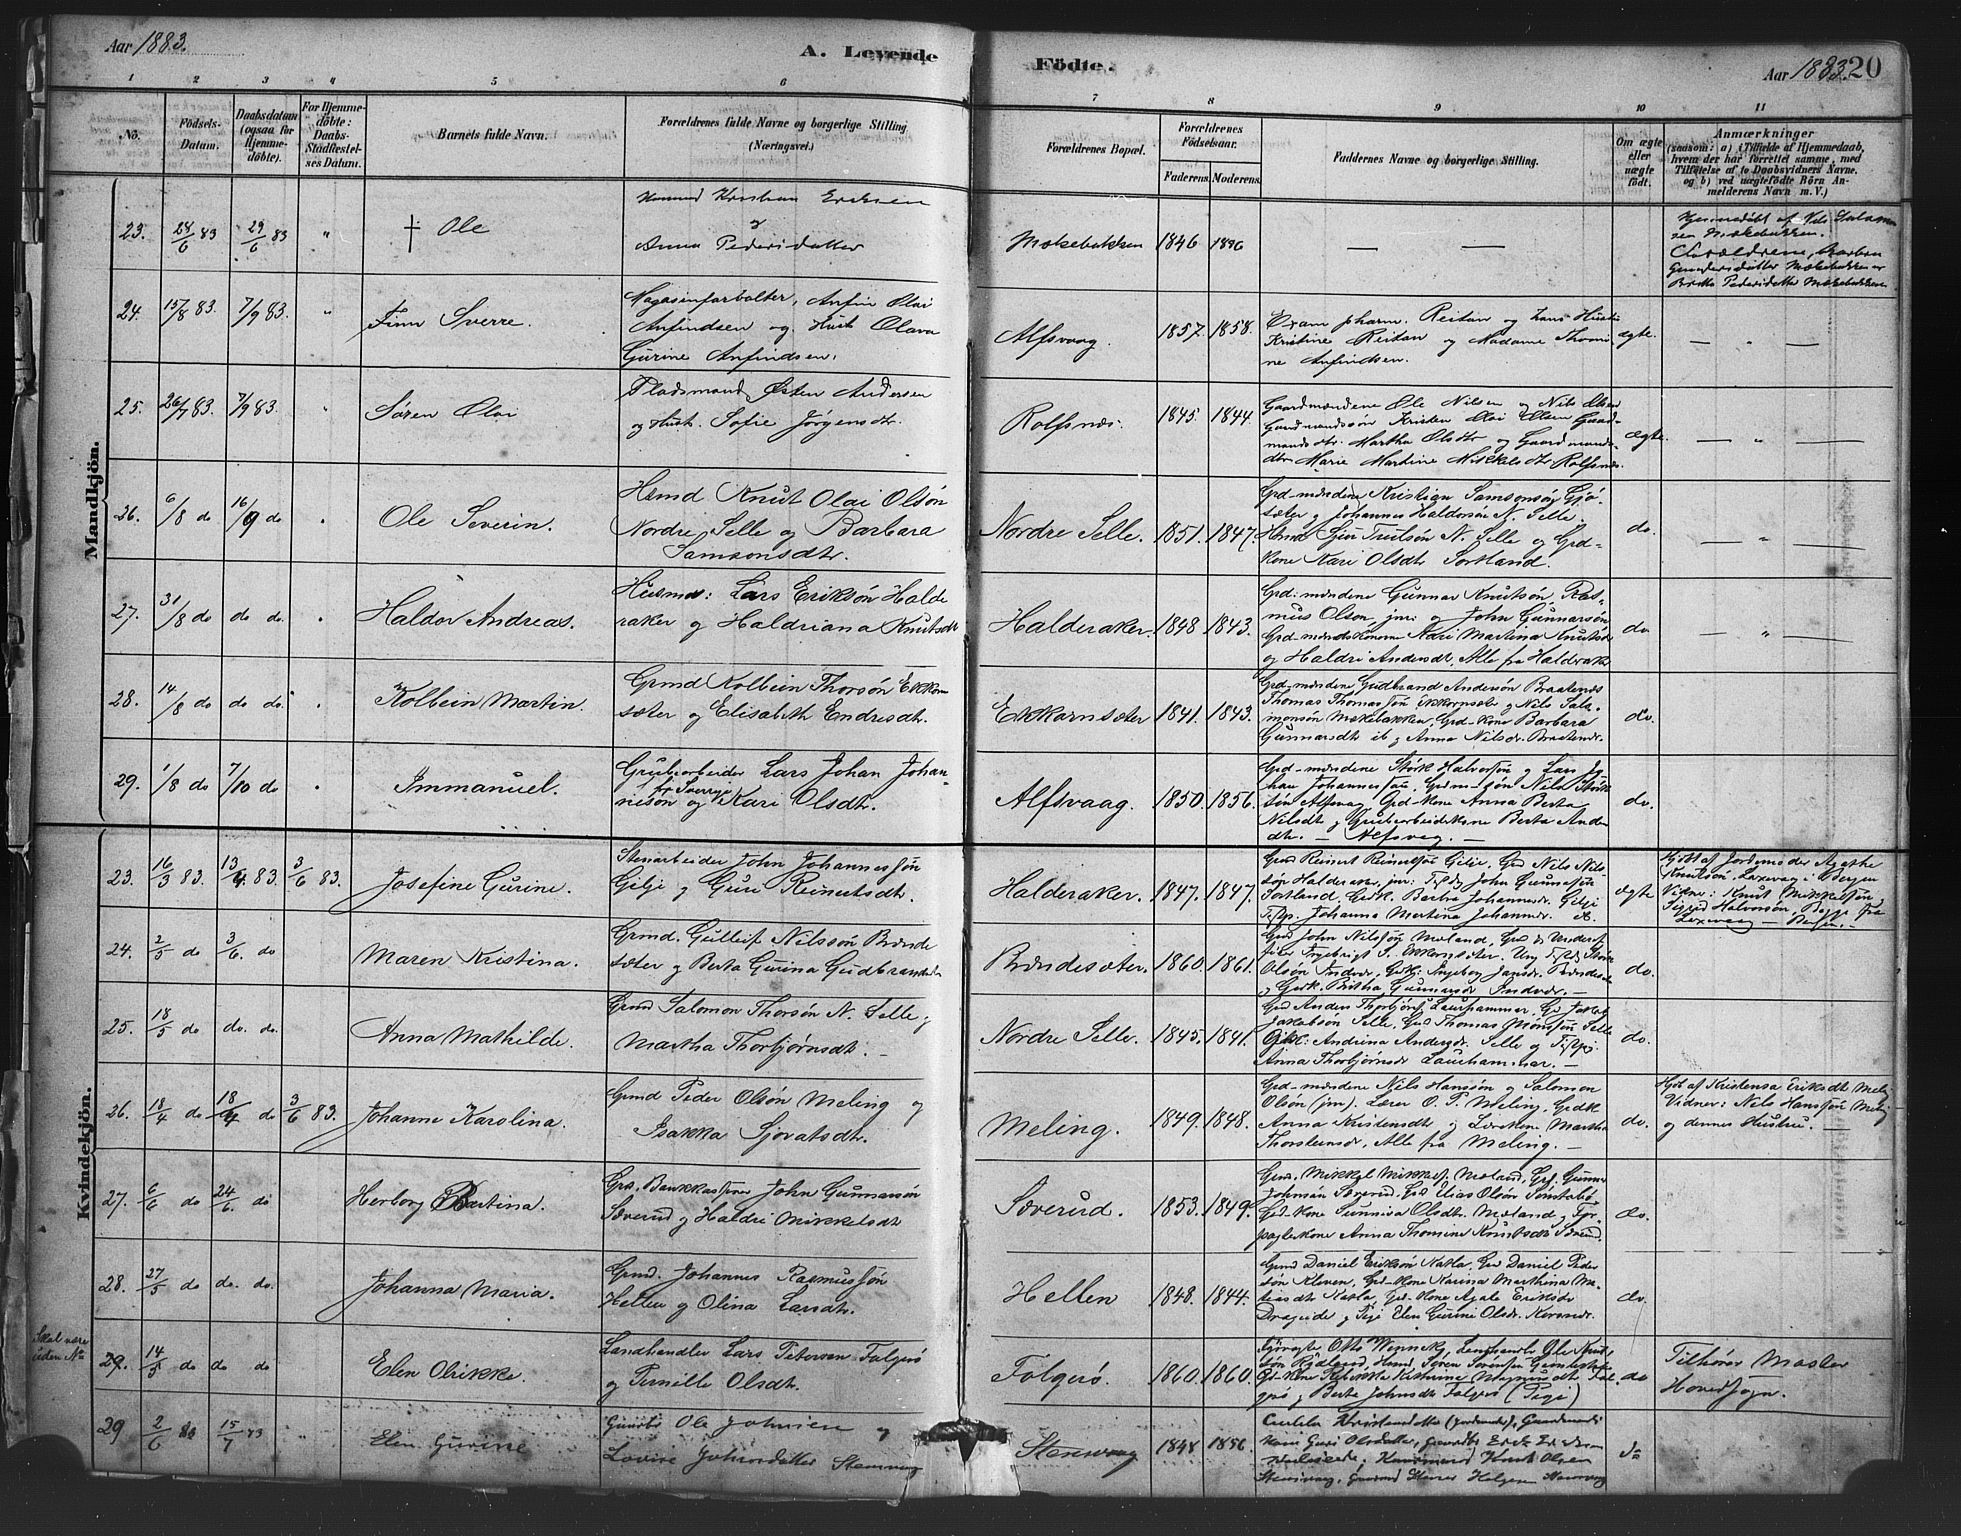 Aar 1883.
A. Levende
Födte.
Aar 1883. 20
1 2 3 4 5 6 7 8 9 10 11
No.
Födsels-Datum.
Daabsdatum (ogsaa for Hjemme-döbte).
For Hjemme-döbte: Daabs-Stadfæstel-ses Datum.
Barnets fulde Navn.
Forældrenes fulde Navne og borgerlige Stilling
(Næringsvei.)
Forældrenes Bopæl.
Forældrenes Födselsaar.
Faderens. Moderens.
Faddernes Navne og borgerlige Stilling.
Om ægte eller uægte födt.
Anmærkninger
(saasom: a) i Tilfælde af Hjemmedaab, hvem der har forrettet samme, med Tilföielse af to Daabsvidners Navne. og b) ved uægtefödte Börn An-melderens Navn m. V.)
Mandkjön.
23. 28/6 83 29/6 83 " † Ole
Kristian Eriksen
og
Anna Pedersdatter
Mækebakken 1846 — —
Hjemmedøbt af Nils
Mækebakken.
Forældrene, Barbra
Gundersdatter Mækebakken og
Britta Pedersdatter Mækebakken
24. 15/8 83. 7/9 83. " Finn Sverre.
Magasinforvalter, Anfin Olai
Anfindsen og Hust. Olava
Gurine Anfindsen.
Alfsvaag. 1857. 1858.
Exam. pharm. Reitan og hans Hustru
Kristine Reitan og Madame Thomi-
ne Anfindsen.
ægte. — " —
25. 26/7 83. 7/9 83. " Søren Olai
Pladsmand Østen Andersen
og Hust. Sofie Jörgensdtr.
Rolfsnæs. 1845. 1844.
Gaardmændene Ole Nilsen og Nils Olsen
Gaardmandssön Kristen Olai Olsen Gaard-
mandsdtr. Martha Olsdtr og Gaardmands-
dtr. Marie Martine Mikkelsdtr Rolfsnæs.
ægte. — " —
26. 6/8 do 16/9 do " Ole Severin.
Hsmd Knut Olai Olsön
Nordre Selle og Barbara
Samsonsdtr.
Nordre Selle. 1851. 1847.
Grd-mændene Kristian Samsonsön Gjö-
sæter og Johannes Haldorsön N. Selle,
N. Selle og Grd-
kone Kari Olsdtr Sortland.
do. — " —
27. 31/8 do do do. " Haldor Andreas.
Husmd: Lars Eriksön Halde
raker og Haldriana Knutsdtr
Halderaker. 1848 1843.
Grd-mændene Gunnar Knutsön Ras-
mus Olson jnr: og John Gunnarsön
Grd-mandskonerne Kari Martina Knutsdtr
og Haldri Andersdtr, Alle fra Haldraker
do — " —
28. 14/8 do do do. " Kolbein Martin.
Grmd Kolbein Thorsön Ekkorn
sæter og Elisabeth Endresdtr.
Ekkornsæter 1841. 1843.
Grd-mændene Gudbrand Andersön Braatenes
Thomas Thomassön Ekkornsæter og Nils Salo-
monsön Mækebakken, Grd-kone Barbara
Gunnarsdtr ib og Anna Nilsdr. Braatenes.
do.
29. 1/8 do 7/10 do " Immanuel.
Grubearbeider Lars Johan Johan-
fr Sverige
nesön og Kari Olsdtr.
Alfsvaag. 1850. 1856.
Grd-mændene Störk Halvorsön og Lars Jo-
han Johannessön, Grdm-sön Nils Störk-
sön Alfsvag, Grd-kone Anna Berta
Nilsdtr og Grubearbeiderkone Berta Anders
dtr. — Alfsvag. —
do.
Kvindekjön.
23. 16/3 83. 13/4 83. 3/6 83. Josefine Gurine.
Stenarbeider John Johannessön
Gilje og Guri Reinertsdtr.
Halderaker. 1847. 1847.
Grd Reinert Reinertsön Gilje, Grd Nils Nils-
sön Halderaker, jnr: John Gunnarsön
Sortland, Grdk. Bertha Johannesdr. Gilje
Johanna Martina Johannesdr. ib.
ægte
Hjdbt af Jordemoder Agathe
Knutson, Laxevag i Bergen
Vidner: Knut Mikkelsön
Sigrid Halvorsön, Begge fra
Laxevaag — Bergen. —
24. 2/5 do 3/6. do Maren Kristina.
Grmd. Gulleif Nilssön Brænde
sæter og Berta Gurina Gudbrandsdr
Brændesæter. 1860. 1861.
Grd John Nilssön Moland, Grd
Ingebrigt J. Ekkornsæter. Ung
Olsön Grdk: Ingeborg Jansdr. Brændesæter
og Grdk. Britha Gunnarsdr —
do.
25. 18/5 do do. do. Anna Mathilde.
Grmd Salomon Thorsön N. Selle og
Martha Thorbjörnsdtr.
Nordre Selle. 1845. 1841.
Grd Anders Thorbjörns. Laurhammer, Grd Jakob
Jakobsön Selle, Grd Thomas Monssön Selle
Gdk: Andrina Andersdr. Selle og
Anna Thorbjörnsdr Laurhammer. —
do.
26. 18/4 do 18/4 do 3/6 83. Johanne Karolina.
Grmd Peder Olsön Meling og
Isakka Sjovatsdtr.
Meling. 1849. 1848.
Grd-mændene Nils Hanssön og Salomon
Olsön (jnr). Lærer O. P. Meling, Grdk
Anna Kristensdtr og Lærerkone Martha
Thorsteinsdr, Alle fra Meling. —
do.
Hjdbt af Kristensa Eriksdtr Meling
Vidner: Nils Hanssön Meling
og dennes Hustru. —
27. 6/6 do 24/6. do Herborg Bertina.
John Gunnarsön
Sæverud og Haldri Mikkelsdtr
Sæverud. 1853. 1849.
Grd. Mikkjel Mikkels. Moland, Grd. Gunnar
Johnsön Sæverud, Grd Elias Olsön Sönstabö
Grd-kone Sunniva Olsdtr. Moland og
kone Anna Thomine Knutsdtr Sæverud.
do.
28. 27/5 do do. do. Johanna Maria.
Grmd. Johannes Rasmussön
Hellen og Olina Larsdtr.
Hellen 1848. 1844.
Grmd Daniel Eriksön Katla, Grd Daniel Peder
sön Kleven, Grd-kone Karina Marthina Ma-
tiasdt Katla, Grd-kone Agate Eriksdr
Drageide og Pige Elen Gurine Olsdr.
do.
Skal være
uden No
29. 14/5 do do do Elen Olrikke.
Landhandler Lars Petersen Folgerö
og Pernille Olsdtr.
Folgerö. 1860. 1860.
Otto Wenneck, Landhandler Ole Knut-
sön Rydland, Hsmd, Sören Sörensen
Gd-kone Rebekka Kathrine Magnusdtr Fol-
gerö, og Berte Johnsdtr Folgerö (Pige)
do
Tilhörer Moster
Hovedsogn.
29 2/6 83 15/7 83 " Elen Gurine
Gaardbr Ole Johnsen og
Lovise Johnsdatter Stensvag
Stensvaag 1848 1856
Cecilia Kristensdatter (Jordemoder), Gaardmands
kone Guri Olsdatter, Gaardbr Erik Eriksen
Huusmand Knut Olsen
Stensvaag, Helgesen Stensvag
do